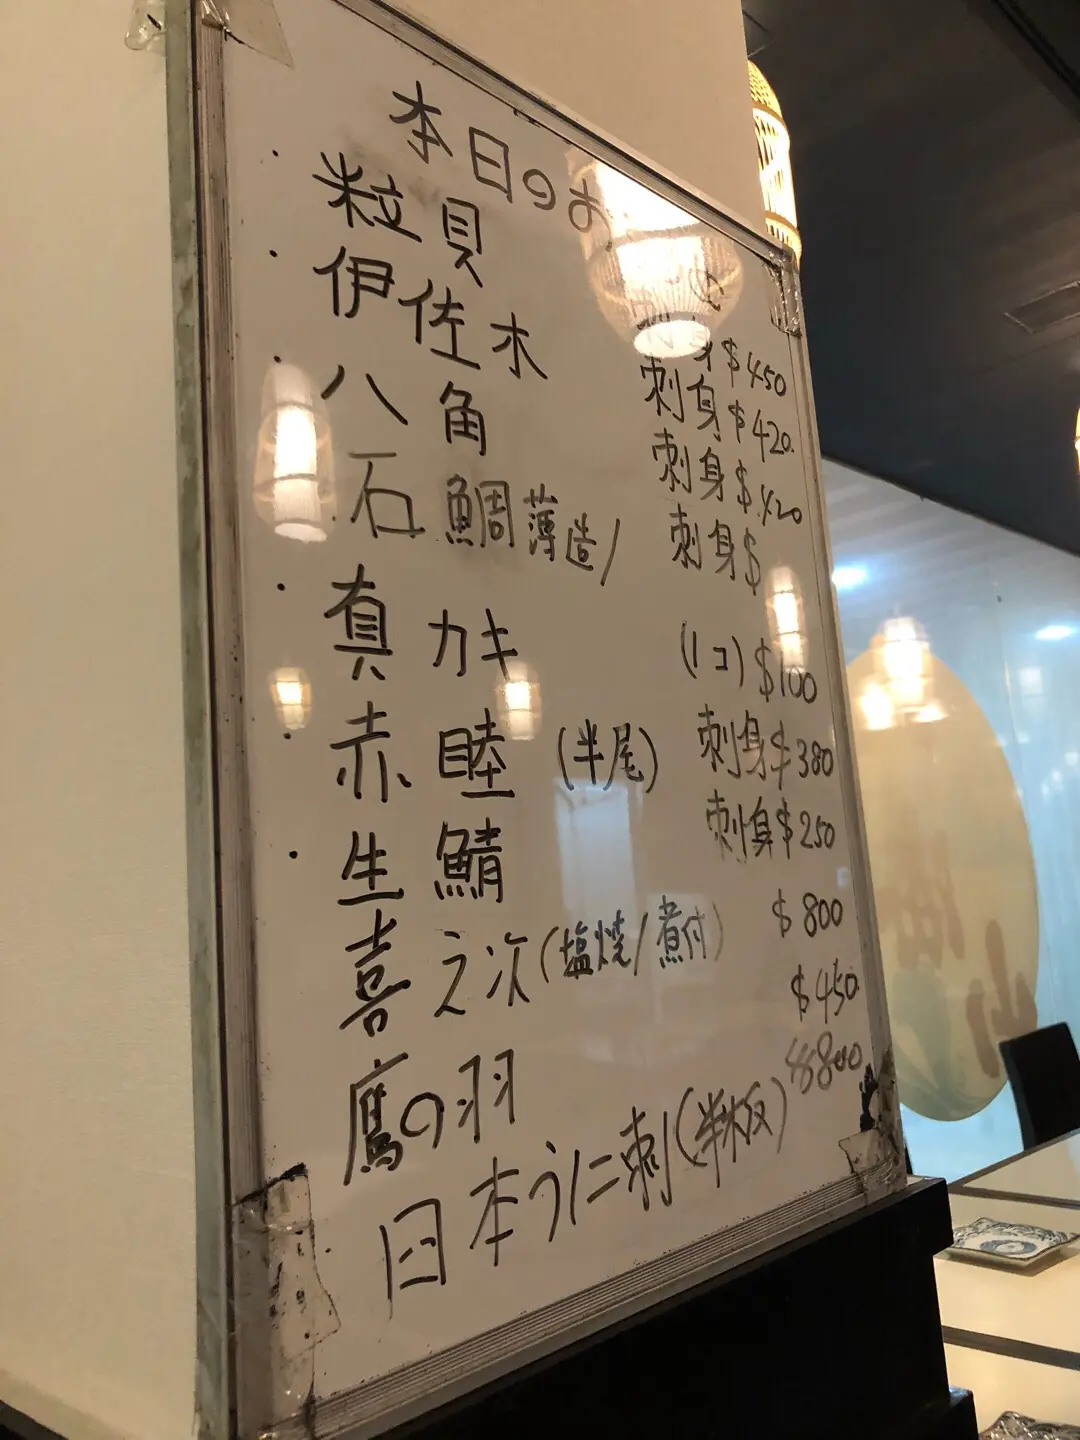 本日のお
粒貝 刺身$450
伊佐木 刺身$420.
八角 刺身$420
石鯛薄造/ 刺身$
真カキ (1コ) $100
赤睦 (半尾) 刺身$380
生鯖 刺身$250
喜之次(塩焼/煮付) $800
鷹の羽 $450.
日本うに刺(半板) $800